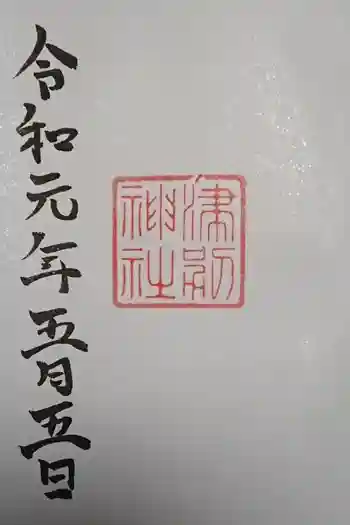 津別
神社
令和元年五月五日